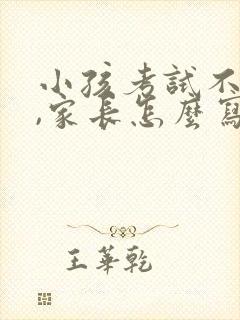 小孩考試不
,家長怎麼寫
王華乾